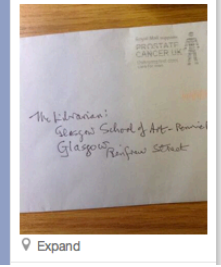 Royal Mail supports
PROSTATE
CANCER UK
The Librarian:
Glasgow School of Art -
Glasgow
Renfrew Street
Expand